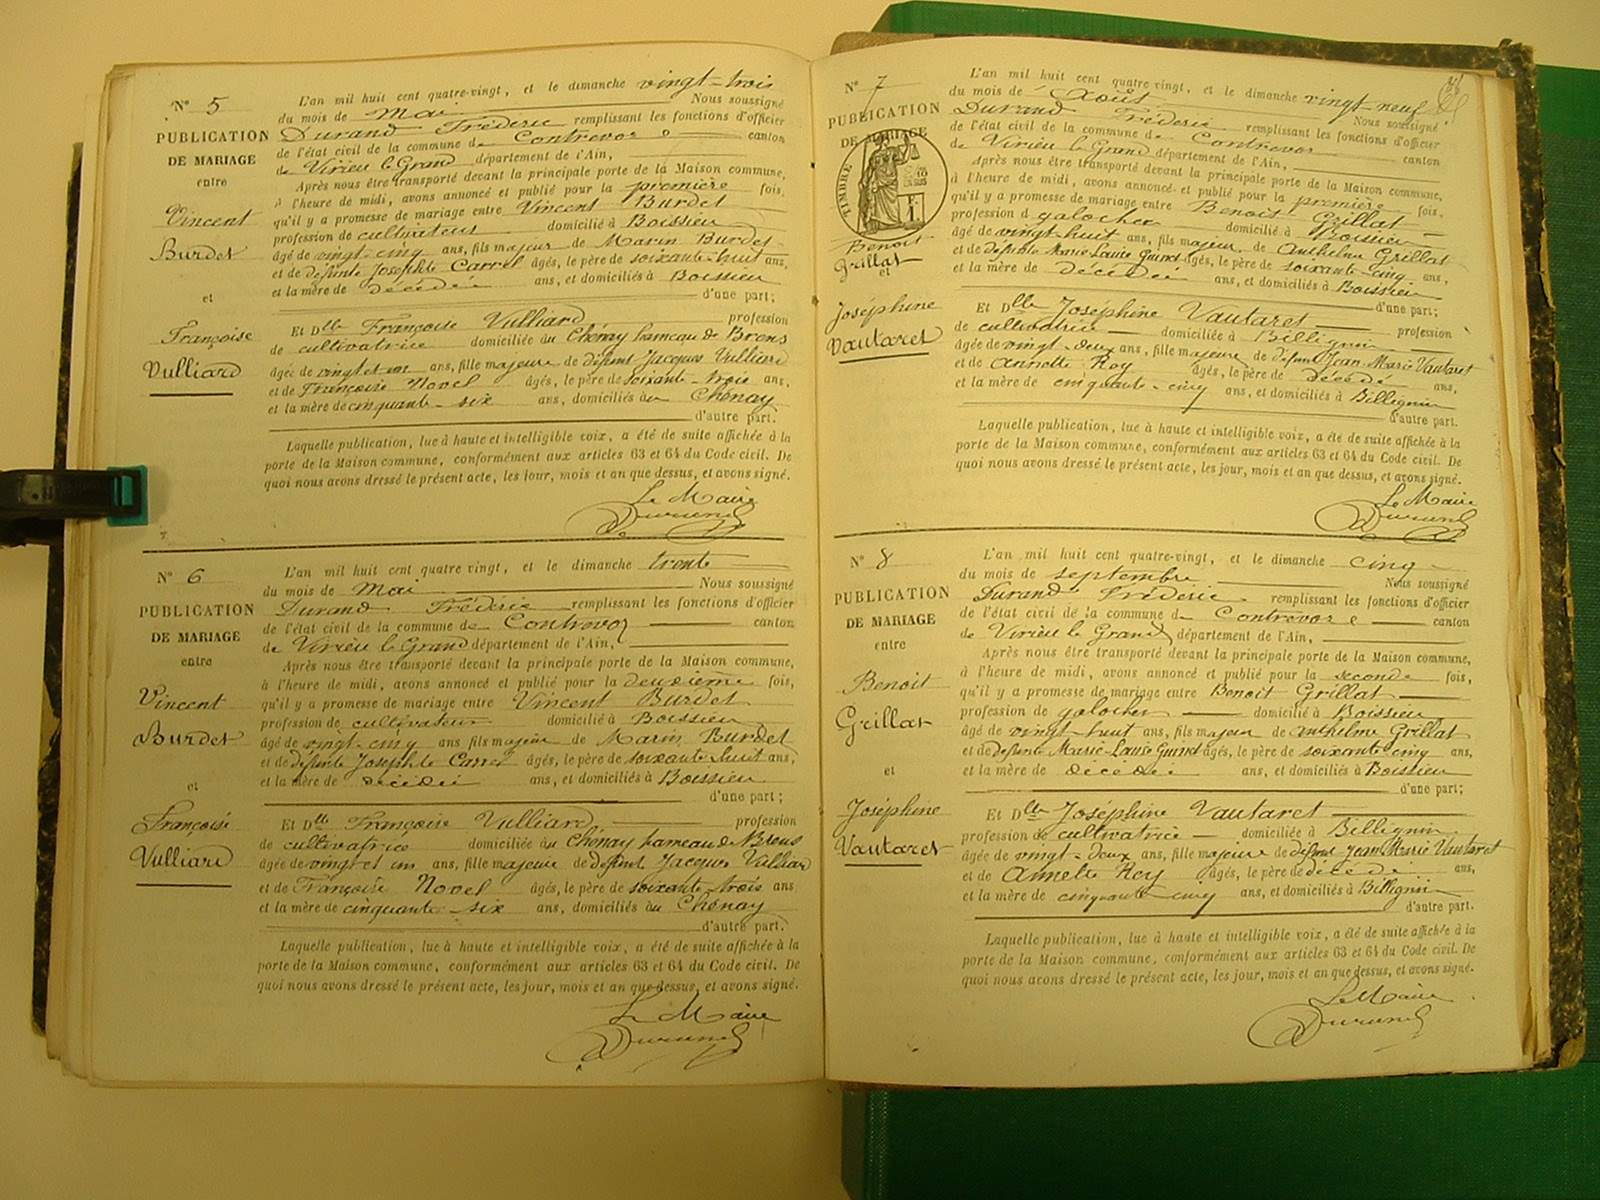 N° 5
PUBLICATION
DE MARIAGE
entre
Vincent
Burdet
et
Françoise
Vulliard
L'an mil huit cent quatre-vingt, et le dimanche vingt-trois
du mois de Mai Nous soussigné
Durand Fréderic remplissant les fonctions d'officier
de l'état civil de la commune de Contrevoz canton
de Virieu le Grand département de l'Ain,
Après nous être transporté devant la principale porte de la Maison commune,
à l'heure de midi, avons annoncé et publié pour la première fois,
qu'il y a promesse de mariage entre Vincent Burdet
profession de cultivateur domicilié à Boissieu
âgé de vingt-cinq ans, fils majeur de Marin Burdet
et de défunte Josephte Carrel âgés, le père de soixante-huit ans,
et la mère de décédée ans, et domiciliés à Boissieu
d'une part;
Et Dlle Françoise Vulliard profession
de cultivatrice domiciliée au Chénay hameau de Brens
âgée de vingt et un ans, fille majeure de défunt Jacques Vulliard
et de Françoise Novel âgés, le père de soixante-trois ans,
et la mère de cinquante-six ans, domiciliés au Chénay
d'autre part.
Laquelle publication, lue à haute et intelligible voix, a été de suite affichée à la
porte de la Maison commune, conformément aux articles 63 et 64 du Code civil. De
quoi nous avons dressé le présent acte, les jour, mois et an que dessus, et avons signé.
Le Maire
Durand
N° 6
PUBLICATION
DE MARIAGE
entre
Vincent
Burdet
et
Françoise
Vulliard
L'an mil huit cent quatre-vingt, et le dimanche trente
du mois de Mai Nous soussigné
Durand Fréderic remplissant les fonctions d'officier
de l'état civil de la commune de Contrevoz canton
de Virieu le Grand département de l'Ain,
Après nous être transporté devant la principale porte de la Maison commune,
à l'heure de midi, avons annoncé et publié pour la deuxième fois,
qu'il y a promesse de mariage entre Vincent Burdet
profession de cultivateur domicilié à Boissieu
âgé de vingt-cinq ans, fils majeur de Marin Burdet
et de défunte Josephte Carrel âgés, le père de soixante-huit ans,
et la mère de décédée ans, et domiciliés à Boissieu
d'une part;
Et Dlle Françoise Vulliard, profession
de cultivatrice domiciliée au Chénay hameau de Brens
âgée de vingt et un ans, fille majeure de défunt Jacques Vulliard
et de Françoise Novel âgés, le père de soixante-trois ans
et la mère de cinquante-six ans, domiciliés au Chénay
d'autre part.
Laquelle publication, lue à haute et intelligible voix, a été de suite affichée à la
porte de la Maison commune, conformément aux articles 63 et 64 du Code civil. De
quoi nous avons dressé le présent acte, les jour, mois et an que dessus, et avons signé.
Le Maire
Durand
N° 7
PUBLICATION
DE MARIAGE
TIMBRE
Benoit
Grillat
et
Joséphine
Vautaret
L'an mil huit cent quatre-vingt, et le dimanche vingt-neuf
du mois de Août Nous soussigné
Durand Fréderic remplissant les fonctions d'officier
de l'état civil de la commune de Contrevoz canton
de Virieu le Grand département de l'Ain,
Après nous être transporté devant la principale porte de la Maison commune,
à l'heure de midi, avons annoncé et publié pour la première fois,
qu'il y a promesse de mariage entre Benoit Grillat
profession de galocher domicilié à Boissieu
âgé de vingt-huit ans, fils majeur de Anthelme Grillat
et de défunte Marie-Laure Guinet âgés, le père de soixante-cinq ans,
et la mère de décédée ans, et domiciliés à Boissieu
d'une part;
Et Dlle Joséphine Vautaret profession
de cultivatrice domiciliée à Billignin
âgée de vingt-deux ans, fille majeure de défunt Jean-Marie Vautaret
et de Annette Rey âgés, le père de décédé ans,
et la mère de cinquante-cinq ans, et domiciliés à Billignin
d'autre part.
Laquelle publication, lue à haute et intelligible voix, a été de suite affichée à la
porte de la Maison commune, conformément aux articles 63 et 64 du Code civil. De
quoi nous avons dressé le présent acte, les jour, mois et an que dessus, et avons signé.
Le Maire
Durand
N° 8
PUBLICATION
DE MARIAGE
entre
Benoit
Grillat
et
Joséphine
Vautaret
L'an mil huit cent quatre-vingt, et le dimanche cinq
du mois de septembre Nous soussigné
Durand Fréderic remplissant les fonctions d'officier
de l'état civil de la commune de Contrevoz canton
de Virieu le Grand département de l'Ain,
Après nous être transporté devant la principale porte de la Maison commune,
à l'heure de midi, avons annoncé et publié pour la seconde fois,
qu'il y a promesse de mariage entre Benoit Grillat
profession de galocher domicilié à Boissieu
âgé de vingt-huit ans, fils majeur de Anthelme Grillat
et de défunte Marie-Laure Guinet âgés, le père de soixante-cinq ans,
et la mère de décédée ans, et domiciliés à Boissieu
d'une part;
Et Dlle Joséphine Vautaret
profession de cultivatrice domiciliée à Billignin
âgée de vingt-deux ans, fille majeure de défunt Jean Marie Vautaret
et de Annette Rey âgés, le père de décédé ans,
et la mère de cinquante-cinq ans, et domiciliés à Billignin
d'autre part.
Laquelle publication, lue à haute et intelligible voix, a été de suite affichée à la
porte de la Maison commune, conformément aux articles 63 et 64 du Code civil. De
quoi nous avons dressé le présent acte, les jour, mois et an que dessus, et avons signé.
Le Maire
Durand